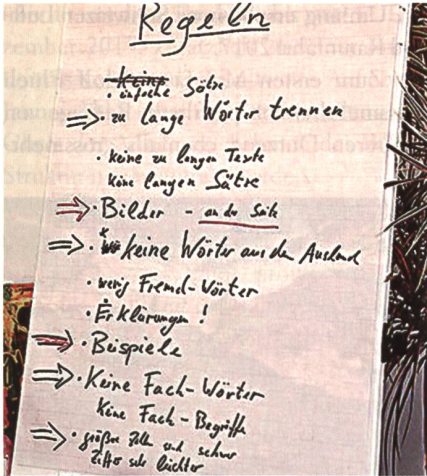 Regeln
Keine
· einfache Sätze
⇒ · zu lange Wörter trennen
· keine zu langen Texte
keine langen Sätze
⇒ · Bilder - an der Seite
⇒ · keine Wörter aus dem Ausland
· wenig Fremd-Wörter
· Erklärungen !
⇒ · Beispiele
⇒ · Keine Fach-Wörter
Keine Fach-Begriffe
⇒ · größere und
leichter